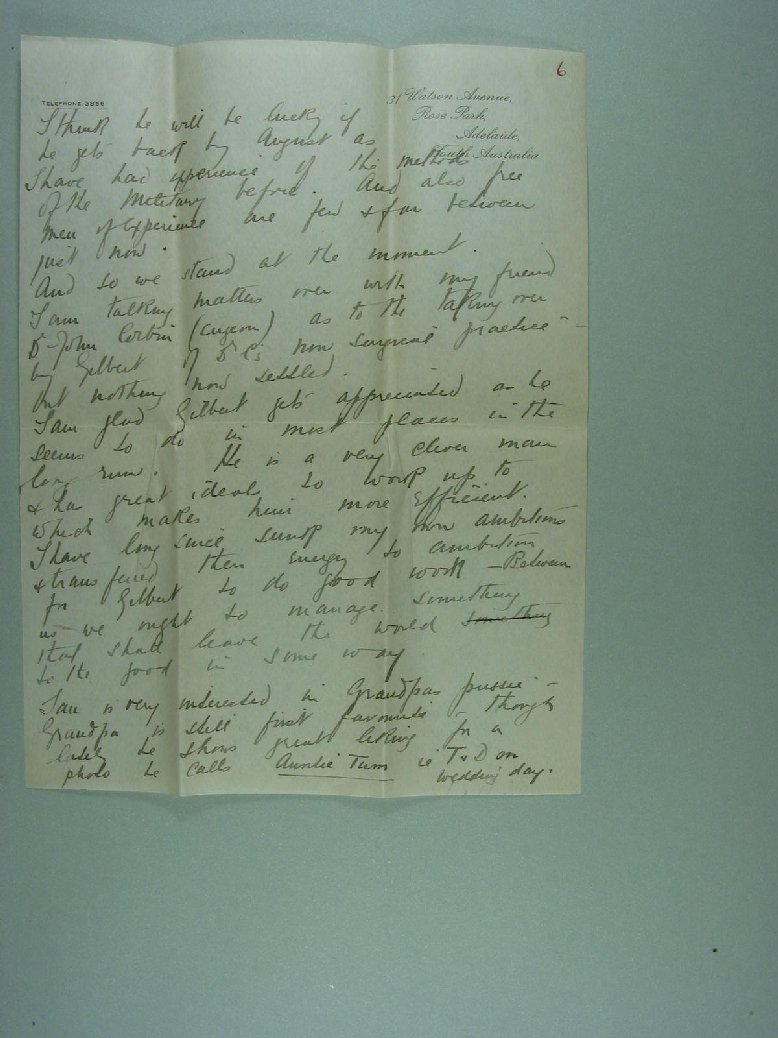 6
TELEPHONE 3956
31 Watson Avenue,
Rose Park,
Adelaide,
South Australia
I think he will be lucky if
he gets back by August as
I have had experience of the methods
of the Military before. And also free
men of experience are few & far between
just now.
And so we stand at the moment.
I am talking matters over with my friend
Dr John Corbin (surgeon) as to the taking over
by Gilbert of Dr C's non surgical practice -
but nothing now settled.
I am glad Gilbert gets appreciated as he
seems to do in most places in the
long run. He is a very clever man
& has great ideals to work up to
which makes him more efficient.
I have long since sunk my own ambitions
& transferred their energy to ambition
for Gilbert to do good work - Between
us - we ought to manage something
that shall leave the world something
to the good in some way
Ian is very interested in Grandpas pussie -
Grandpa is still first favourite - though
lately he shows great liking for a
photo he calls Auntie Tum ie T & D on
wedding day.